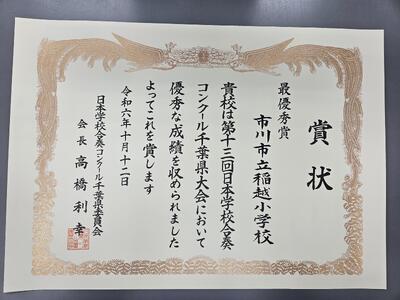 賞状
最優秀賞
市川市立稲越小学校
貴校は第十三回日本学校合奏
コンクール千葉県大会において
優秀な成績を収められました
よってこれを賞します
令和六年十月十二日
日本学校合奏コンクール千葉県委員会
会長 高橋利幸